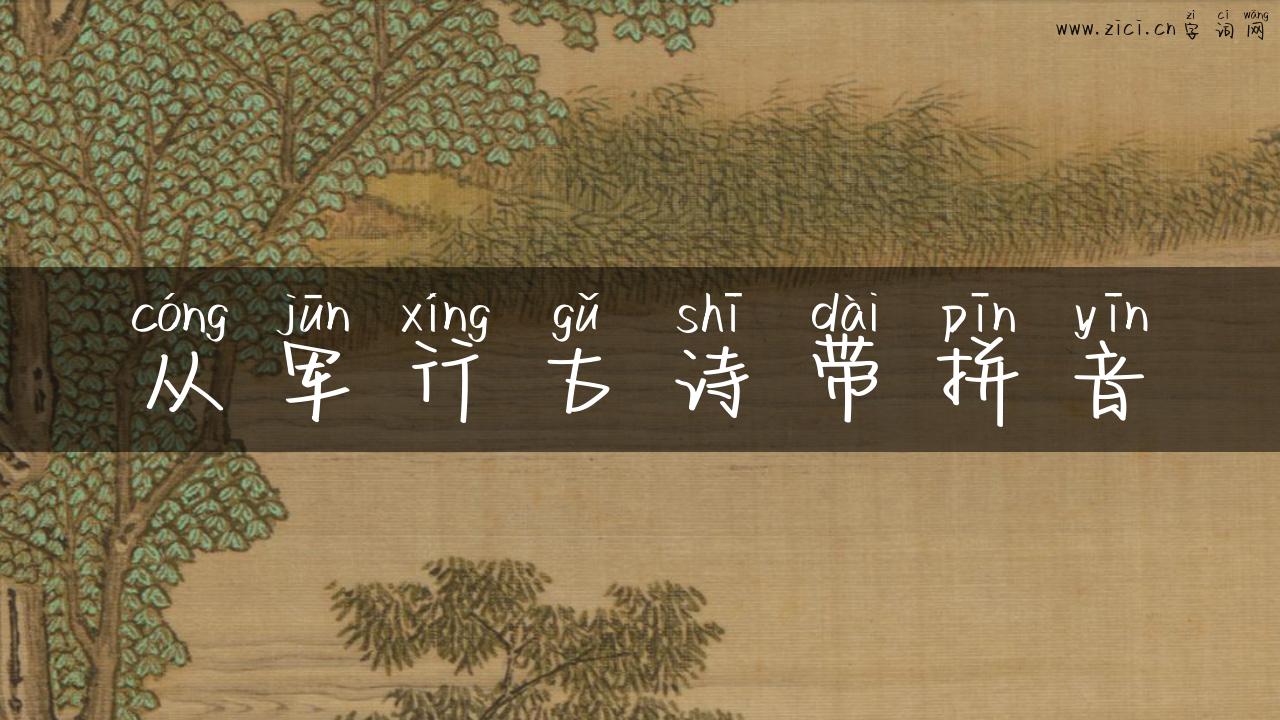 zì cí wǎng
www.zici.cn字词网
cóng jūn xíng gǔ shī dài pīn yīn
从军行古诗带拼音